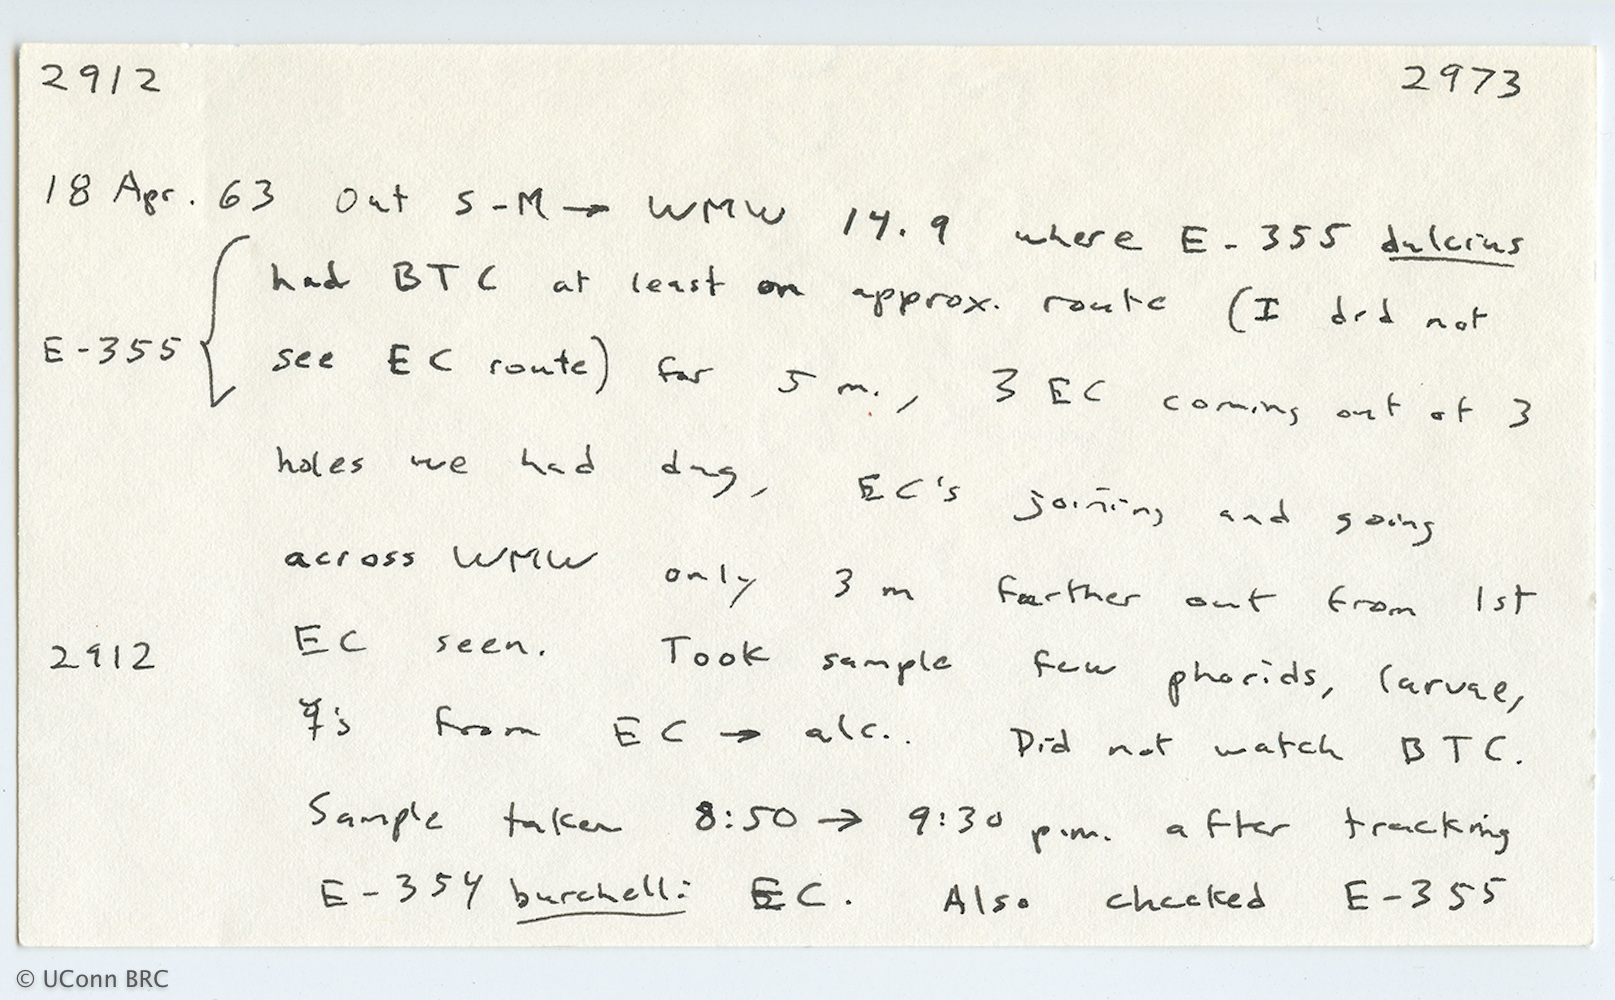 2912 2973
18 Apr. 63 Out S-M → WMW 14.9 where E-355 dulcius
had BTC at least on approx. route (I did not
E-355 see EC route) for 5 m., 3 EC coming out of 3
holes we had dug, EC's joining and going
across WMW only 3 m farther out from 1st
2912 EC seen. Took sample few phorids, larvae,
☿'s from EC → alc.. Did not watch BTC.
Sample taken 8:50 → 9:30 p.m. after tracking
E-354 burchelli EC. Also checked E-355
© UConn BRC